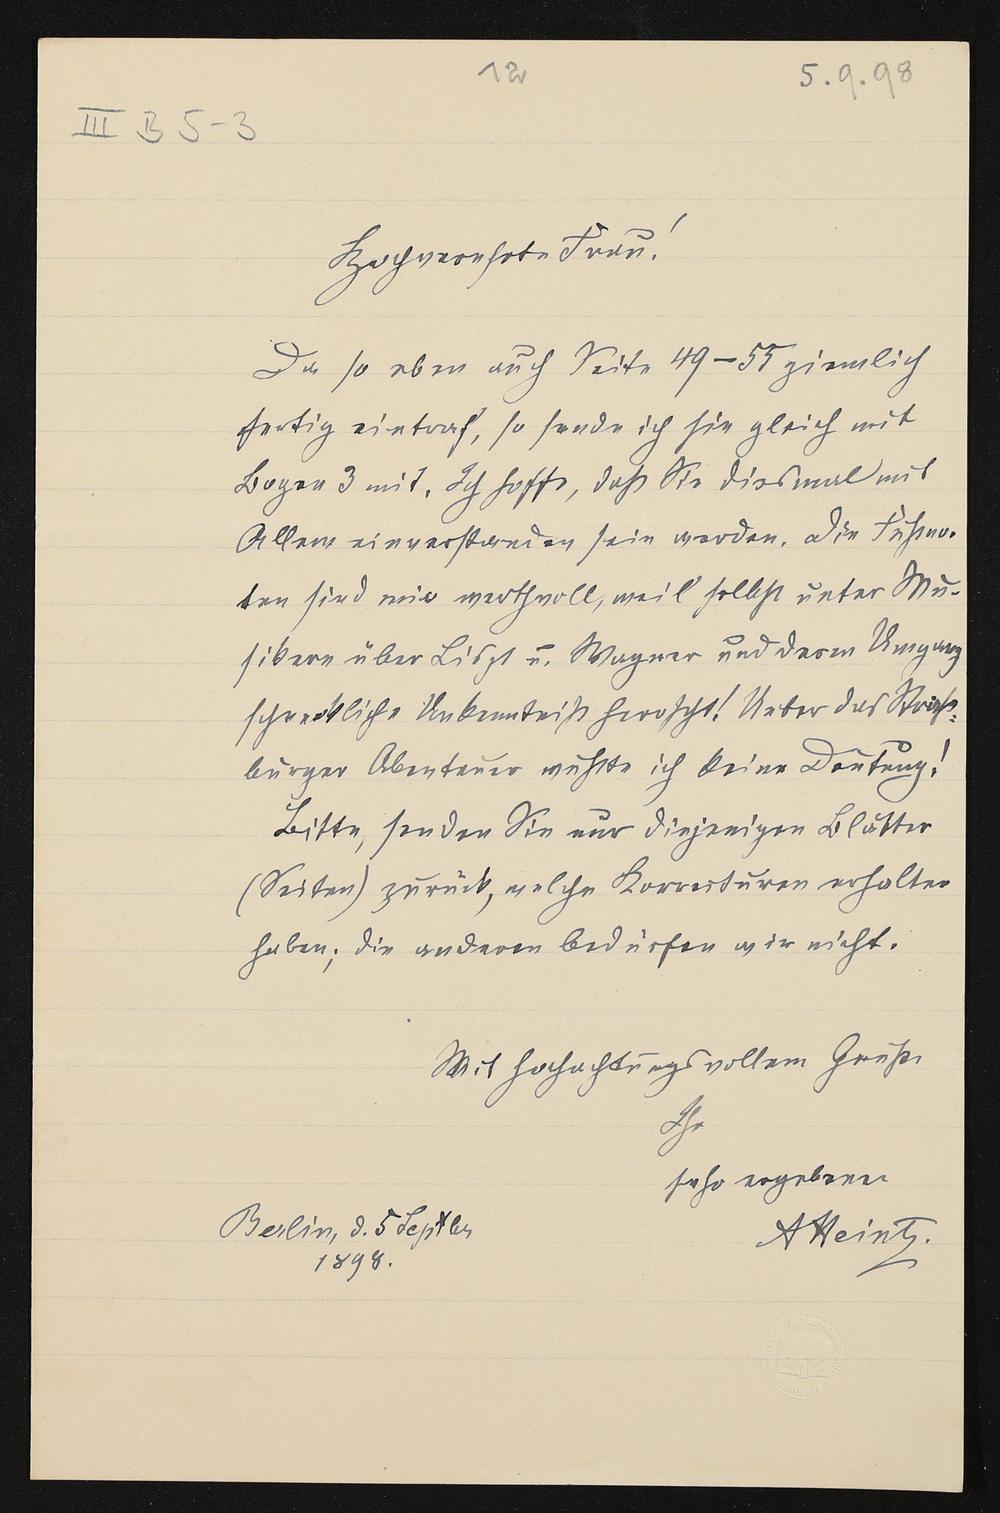 12
5.9.98
III B 5-3
Hochverehrte Frau!
Da so eben auch Seite 49–55 ziemlich
fertig eintraf, so sende ich sie gleich mit
Bogen 3 mit. Ich hoffe, daß Sie diesmal mit
Allem einverstanden sein werden. Die Fußno-
ten sind mir werthvoll, weil selbst unter Mu-
sikern über Liszt u. Wagner und deren Umgang
schreckliche Unkenntniß herrscht! Ueber das Straß-
burger Abenteuer wußte ich keine Deutung!
Bitte, senden Sie nur diejenigen Blätter
(Seiten) zurück, welche Korrecturen erhalten
haben; die anderen bedürfen wir nicht.
Mit hochachtungsvollem Gruße
Ihr
sehr ergebener
A Heintz.
Berlin, d. 5 Septbr
1898.